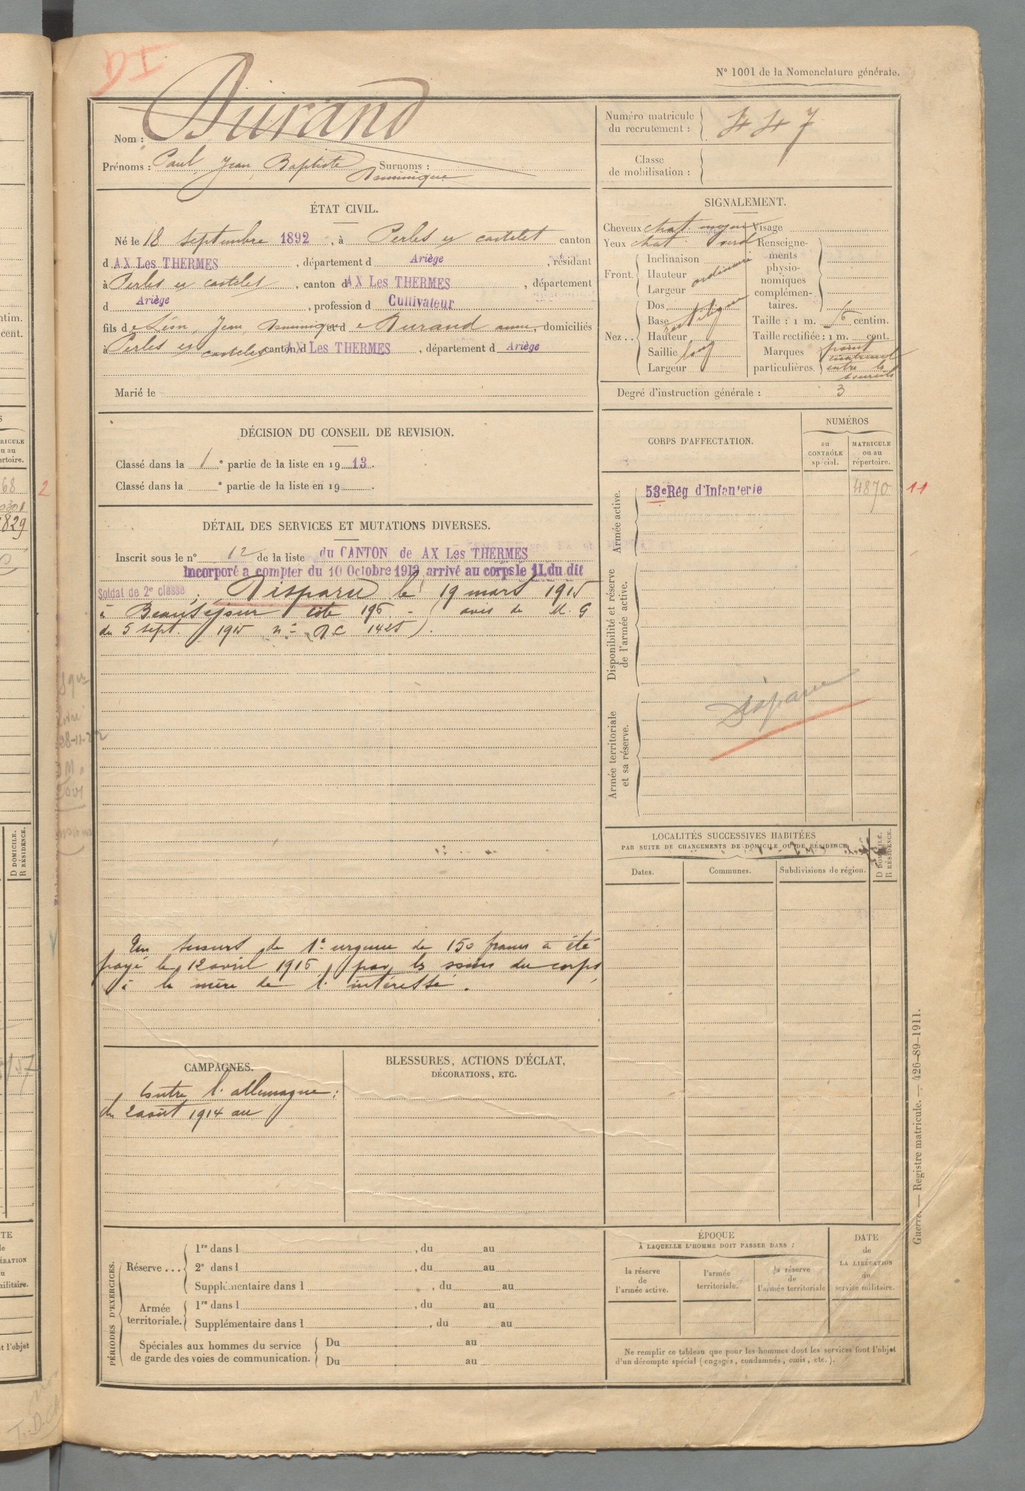 N° 1001 de la Nomenclature générale.
Nom : Durand
Prénoms : Paul Jean Baptiste Surnoms :
Dominique
Numéro matricule du recrutement : 447
Classe de mobilisation :
ÉTAT CIVIL.
Né le 18 septembre 1892, à Perles et castelet canton
d AX Les THERMES, département d Ariège, résidant
à Perles et castelet, canton d AX Les THERMES, département
d Ariège, profession d Cultivateur
fils de Léon, Jean Dominique et de Durand anne, domiciliés
à Perles et castelet canton d AX Les THERMES, département d Ariège
Marié le
SIGNALEMENT.
Cheveux chat moyen Visage
Yeux chat verd
Front. Inclinaison
Hauteur ordinaire
Largeur
Nez.. Dos
Base
Hauteur
Saillie
Largeur
Renseignements physionomiques complémentaires.
Taille : 1 m. centim.
Taille rectifiée : 1 m. cent.
Marques particulières. entre les sourcils
Degré d'instruction générale : 3
DÉCISION DU CONSEIL DE REVISION.
Classé dans la 1e partie de la liste en 1913.
Classé dans la e partie de la liste en 19
CORPS D'AFFECTATION.
NUMÉROS
au CONTRÔLE spécial.
MATRICULE ou au répertoire.
Armée active.
53e Rég d'Infanterie 4870 11
Disponibilité et réserve de l'armée active.
Armée territoriale et sa réserve.
Disparu
DÉTAIL DES SERVICES ET MUTATIONS DIVERSES.
Inscrit sous le n° 12 de la liste du CANTON de AX Les THERMES
Incorporé a compter du 10 Octobre 1913 arrivé au corps le 11 du dit
Soldat de 2e classe. Disparu le 19 mars 1915
à Beauséjour côte 196 - (avis de M. G
du 5 sept. 1915 n° AC 1425).
Un secours de 1e urgence de 150 francs a été
payé le 12 avril 1916 par les soins du corps,
à la mère de l'intéressé.
LOCALITÉS SUCCESSIVES HABITÉES
PAR SUITE DE CHANGEMENTS DE DOMICILE OU DE RÉSIDENCE.
Dates. Communes. Subdivisions de région. D DOMICILE. R RÉSIDENCE.
CAMPAGNES.
Contre l'allemagne :
du 2 août 1914 au
BLESSURES, ACTIONS D'ÉCLAT,
DÉCORATIONS, ETC.
PÉRIODES D'EXERCICES.
Réserve ... 1re dans l , du au
2e dans l , du au
Supplémentaire dans l , du au
Armée territoriale. 1re dans l , du au
Supplémentaire dans l , du au
Spéciales aux hommes du service de garde des voies de communication. Du au
Du au
ÉPOQUE
À LAQUELLE L'HOMME DOIT PASSER DANS :
la réserve de l'armée active.
l'armée territoriale.
la réserve de l'armée territoriale
DATE de LA LIBÉRATION du service militaire.
Ne remplir ce tableau que pour les hommes dont les services font l'objet
d'un décompte spécial (engagés, condamnés, omis, etc.).
Guerre. — Registre matricule. — 426-89-1911.